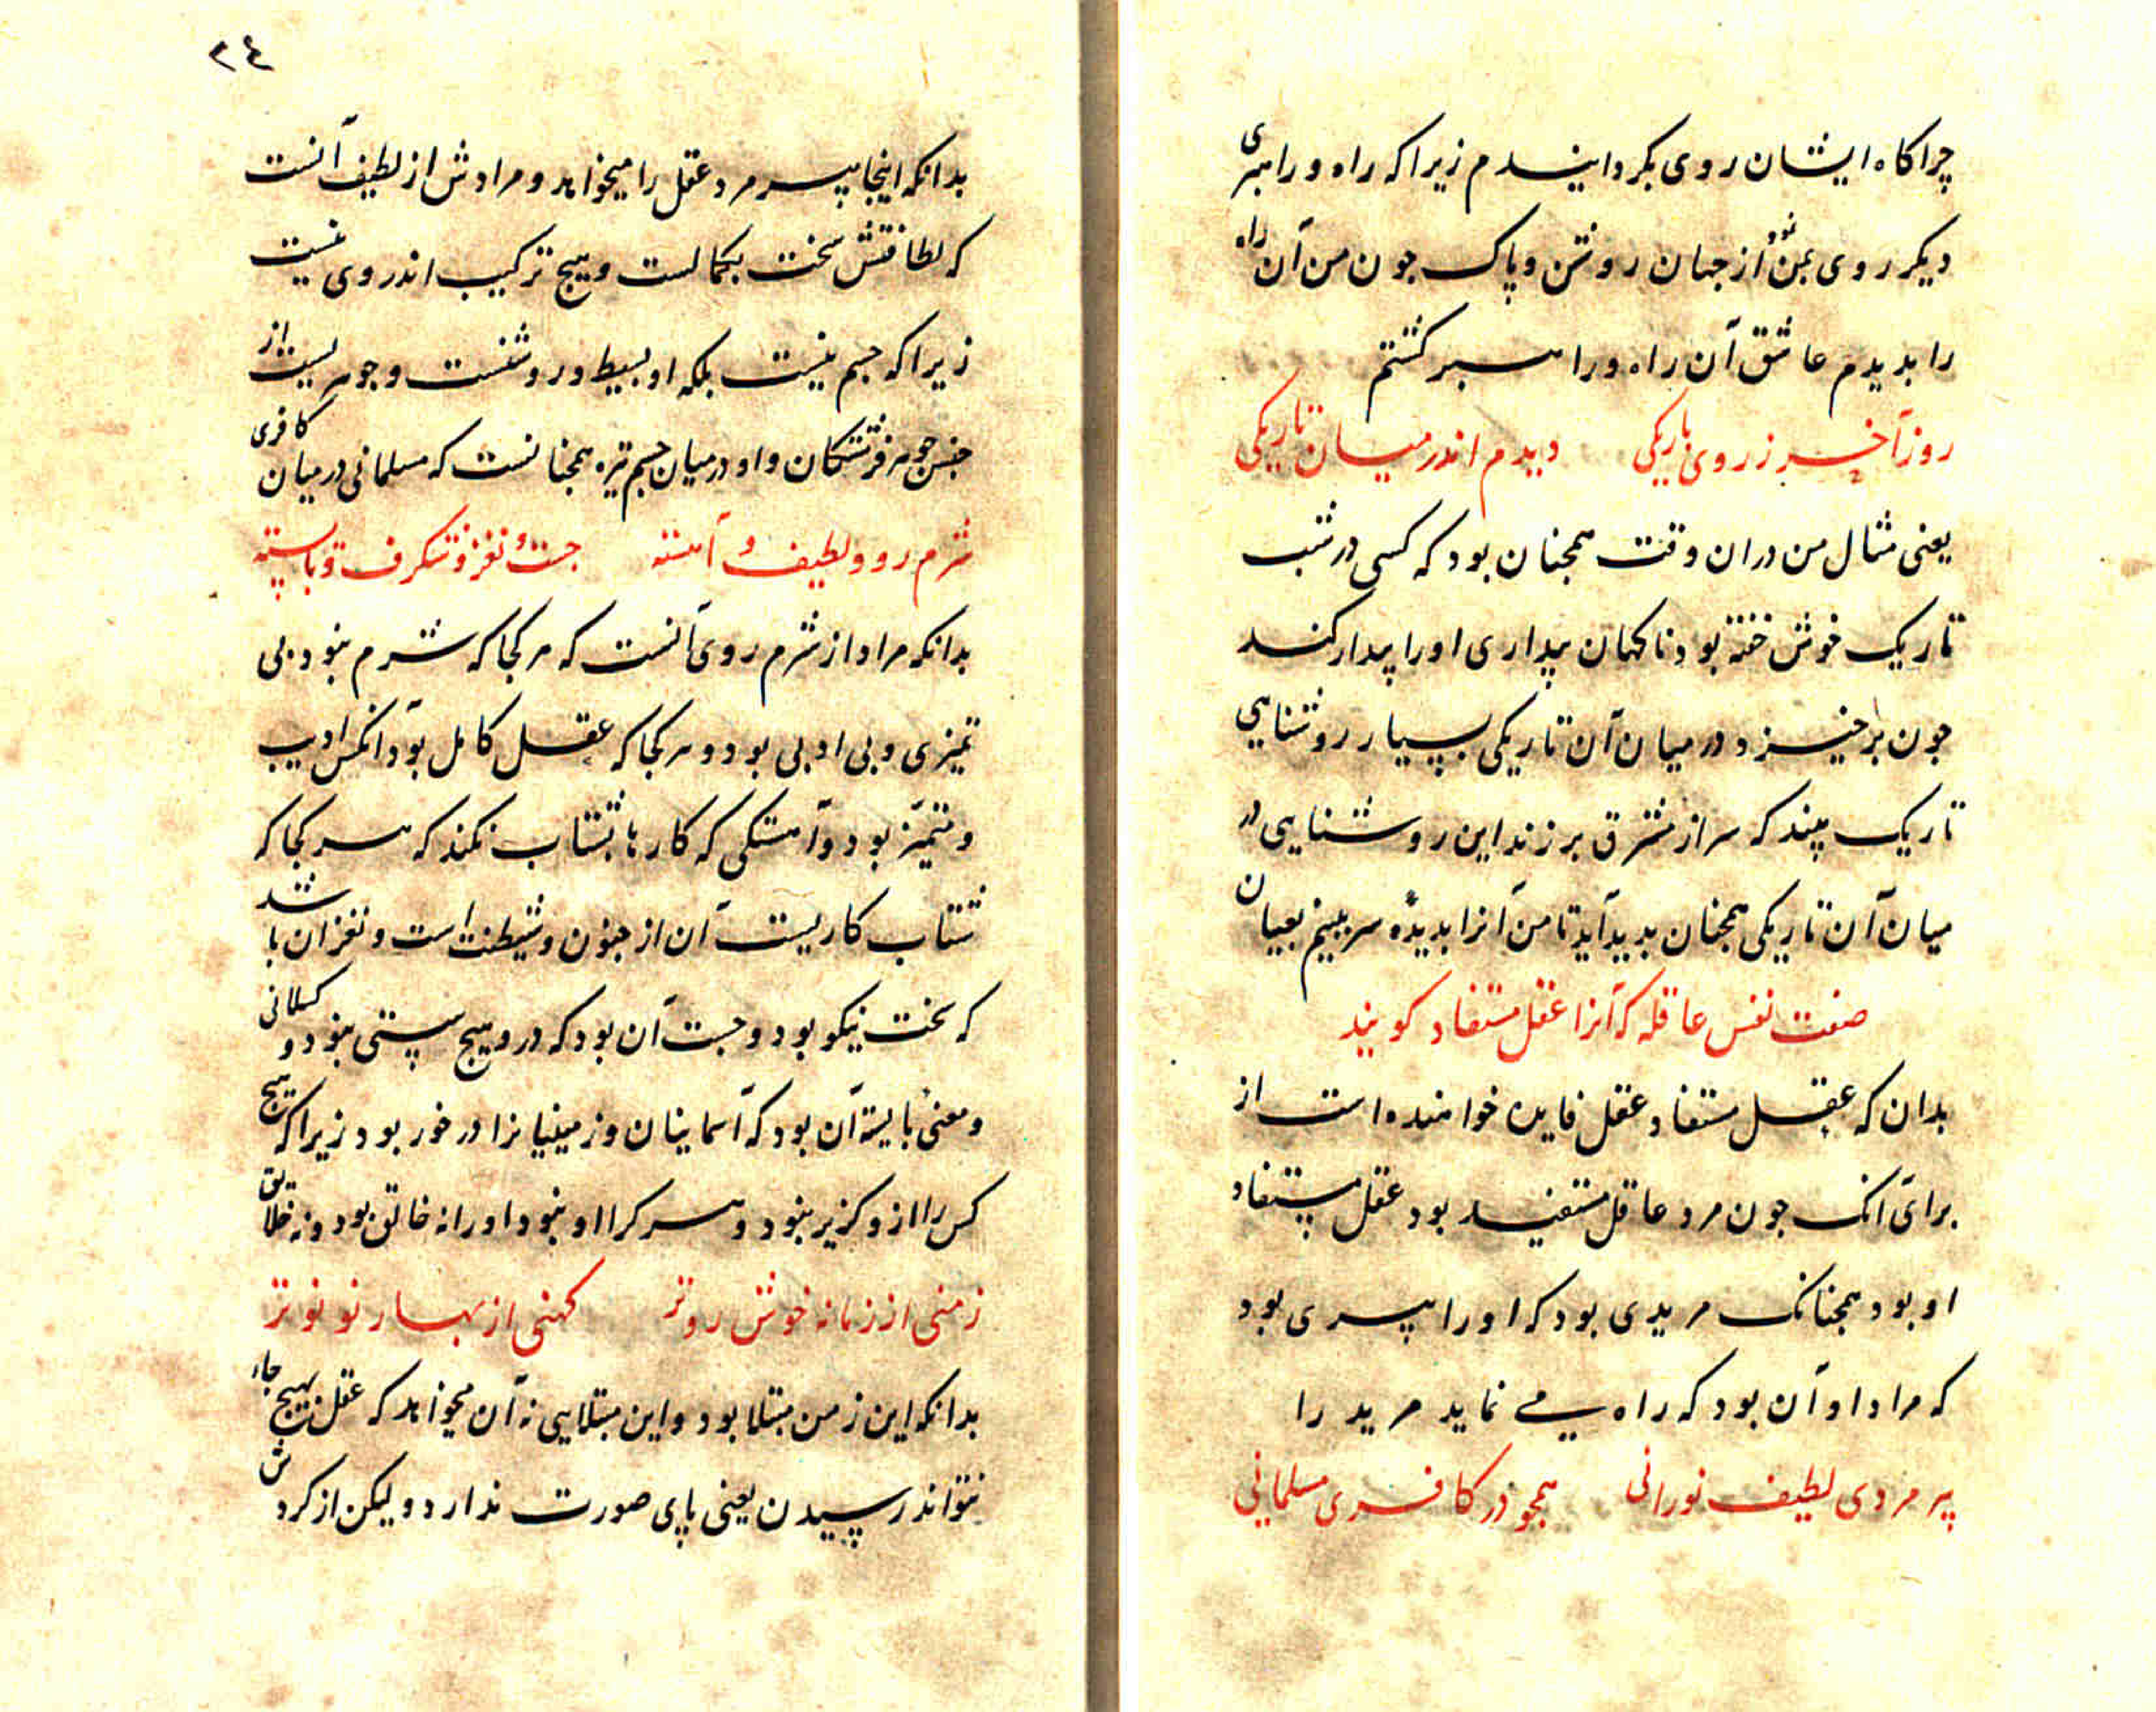 چراکاه ایشان روی بکردانیدم زیراکه راه و راهبری
دیکر روی بمن نمود از جهان روشن و پاک جون من آن راه
را بدیدم عاشق آن راه و راهبر کشتم
روز آخر ز روی باریکی دیدم اندر میان تاریکی
یعنی مثال من دران وقت همجنان بود که کسی در شب
تاریک خوش خفته بود ناکهان بیداری او را بیدار کند
جون برخیزد در میان آن تاریکی بسیار روشنایی
تاریک بیند که سر از مشرق برزند این روشنایی در
میان آن تاریکی همجنان بدید آید تا من آنرا بدیده سر ببینم بعیان
صفت نفس عاقله که آنرا عقل مستفاد کویند
بدان که عقل مستفاد عقل فایده خواهنده است از
برای آنک جون مرد عاقل مستفید بود عقل مستفاد
او بود همجنانک مریدی بود که او را پیری بود
که مراد او آن بود که راه می نماید مرید را
پیر مردی لطیف نورانی همجو در کافری مسلمانی
۲٤
بدانکه اینجا پیرمرد عقل را میخواهد و مرادش از لطیف آنست
که لطافتش سخت بکمالست و هیج ترکیب اندر وی نیست
زیراکه جسم نیست بلکه او بسیط و روشنست و جوهریست از
جنس جوهر فرشتکان و او در میان جسم تیره همجنانست که مسلمانی در میان کافری
شرم رو و لطیف و آهسته جست و نغز و شکرف و بایسته
بدانکه مراد از شرم روی آنست که هر کجا که شرم نبود بی
تمیزی و بی ادبی بود و هر کجا که عقل کامل بود آنکس ادیب
و متمیز بود و آهستکی که کارها بشتاب نکند که هر کجا که
شتاب کاریست آن از جنون و شیطنت است و نغز آن باشد
که سخت نیکو بود و جست آن بود که درو هیج سستی نبود و کسلانی
و معنی بایسته آن بود که آسمانیان و زمینیانرا در خور بود زیراکه هیج
کس را ازو کزیر نبود و هر کرا او نبود او را نه خالق بود و نه خلایق
زمنی از زمانه خوش روتر کهنی از بهار نو نوتر
بدانکه این زمن مبتلا بود و این مبتلایی نه آن میخواهد که عقل بهیج جاء
نتواند رسیدن یعنی پای صورت ندارد ولیکن از کردش